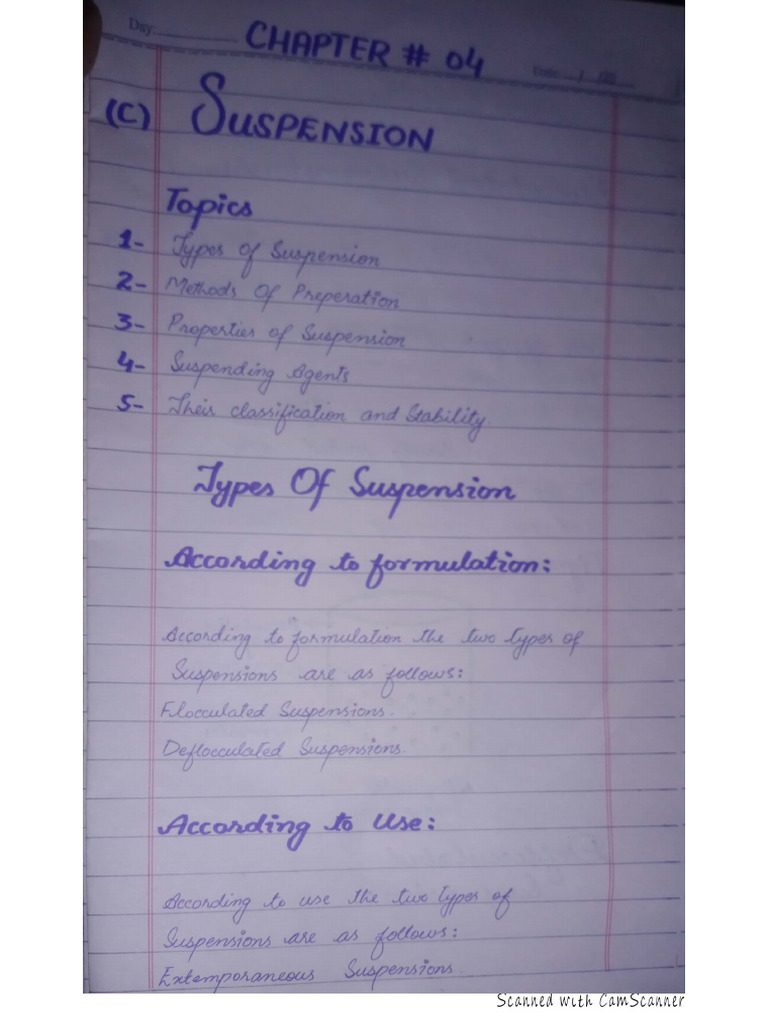 Day:
CHAPTER # 04
Date: / /20
(C) SUSPENSION
Topics
1- Types of Suspension
2- Methods Of Preperation
3- Properties of Suspension
4- Suspending Agents
5- Their classification and Stability.
Types Of Suspension
According to formulation:
According to formulation the two types of
Suspensions are as follows:
Flocculated Suspensions.
Deflocculated Suspensions.
According to Use:
According to use the two types of
Suspensions are as follows:
Extemporaneous Suspensions.
Scanned with CamScanner